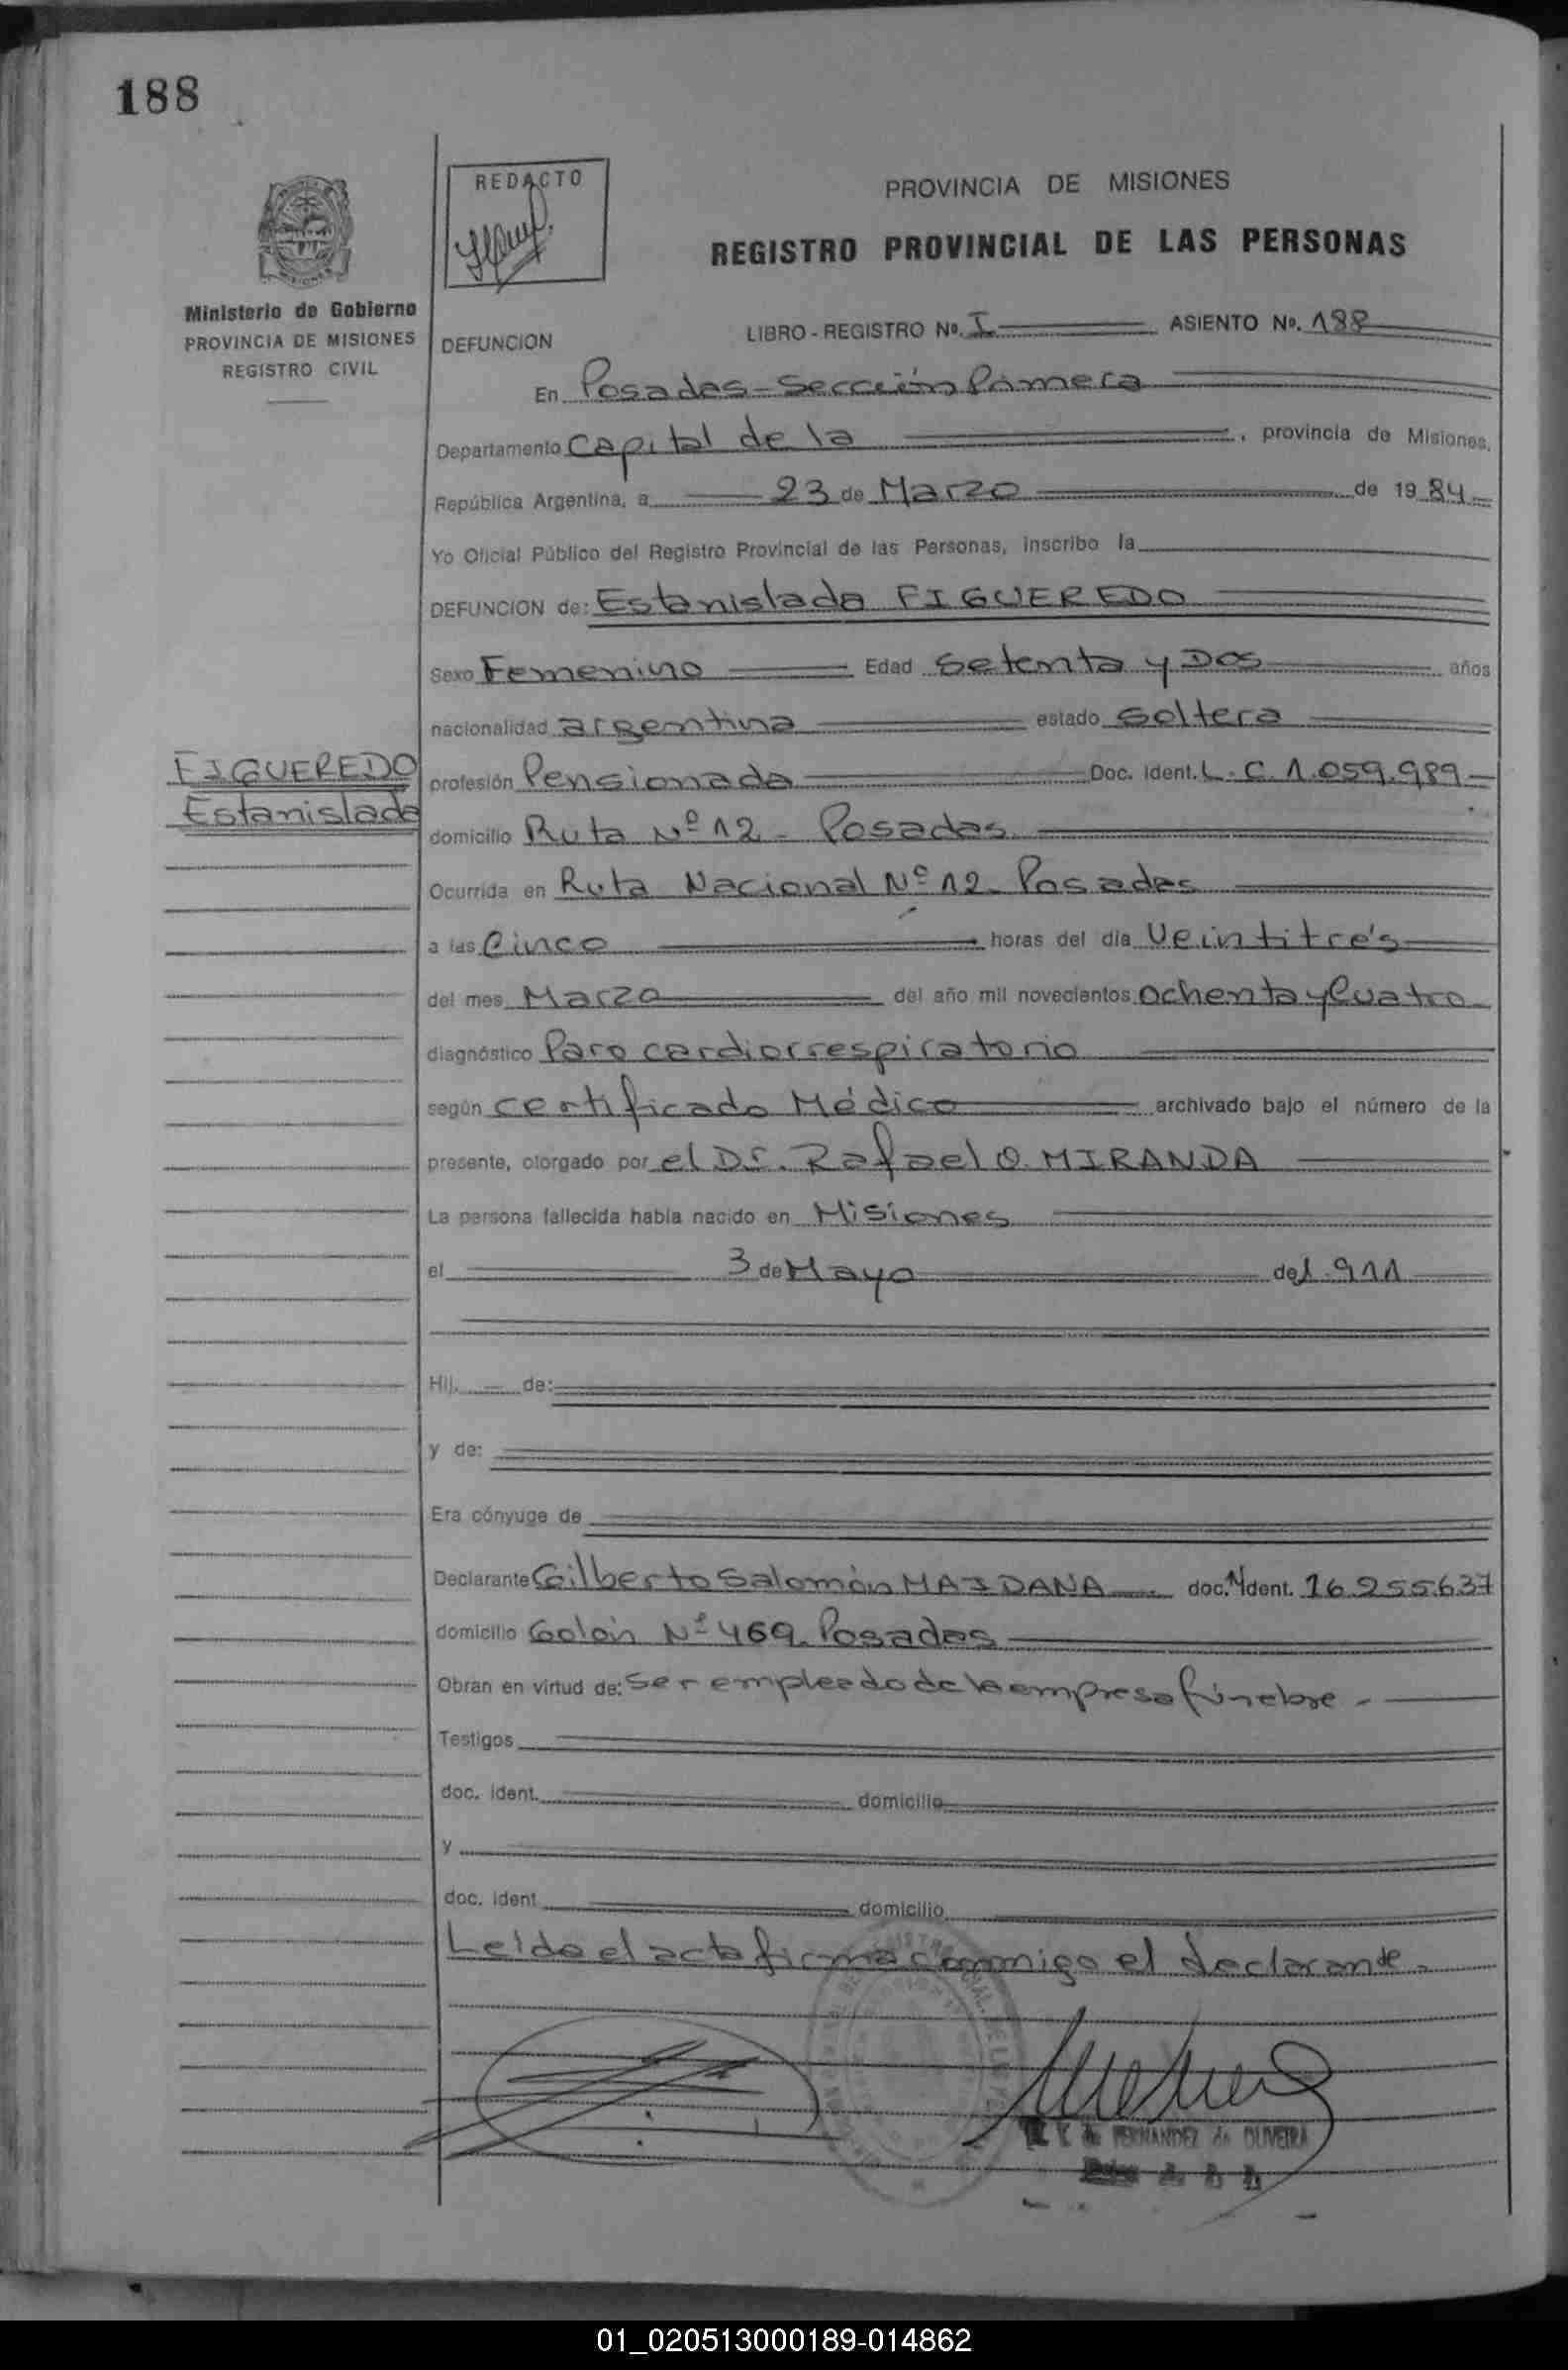 188
REDACTO
PROVINCIA DE MISIONES
REGISTRO PROVINCIAL DE LAS PERSONAS
Ministerio de Gobierno
PROVINCIA DE MISIONES
REGISTRO CIVIL
LIBRO - REGISTRO Nº. I ASIENTO Nº. 188
DEFUNCION
En Posadas - Sección Primera
Departamento Capital de la , provincia de Misiones,
República Argentina, a 23 de Marzo de 1984
Yo Oficial Público del Registro Provincial de las Personas, inscribo la
DEFUNCION de: Estanislada FIGUEREDO
Sexo Femenino Edad Setenta y Dos años
nacionalidad argentina estado Soltera
FIGUEREDO
Estanislada
profesión Pensionada Doc. Ident. L.C. 1.059.989
domicilio Ruta Nº 12 - Posadas
Ocurrida en Ruta Nacional Nº 12 - Posadas
a las Cinco horas del día Veintitrés
del mes Marzo del año mil novecientos Ochenta y Cuatro
diagnóstico Paro cardiorrespiratorio
según certificado Médico archivado bajo el número de la
presente, otorgado por el Dr. Rafael O. MIRANDA
La persona fallecida había nacido en Misiones
el 3 de Mayo de 1.911
Hij. de:
y de:
Era cónyuge de
Declarante Gilberto Salomón MAIDANA doc. Ident. 16.255.637
domicilio Colón Nº 469 - Posadas
Obran en virtud de: Ser empleado de la empresa fúnebre -
Testigos
doc. ident. domicilio
y
doc. ident domicilio
Leída el acta firma conmigo el declarante.
de FERNANDEZ de OLIVEIRA
01_020513000189-014862